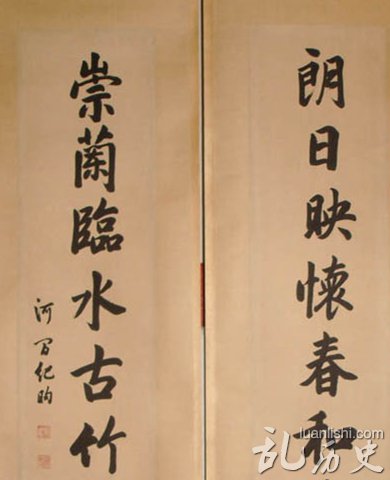 朗日映懷春和
崇蘭臨水古竹
河間紀昀
luanlishi.com
乱历史